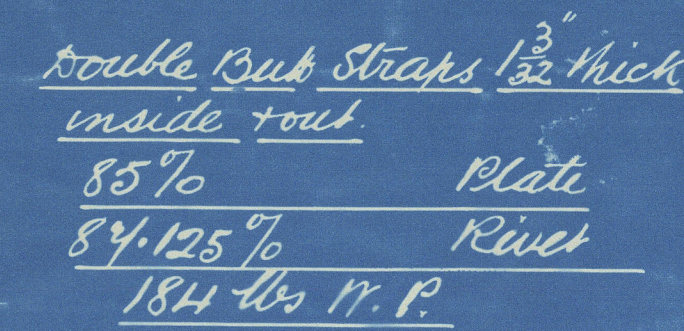 Double Butt Straps 1 3/32" thick
inside + out.
85% Plate
84.125% Rivet
184 lbs W. P.